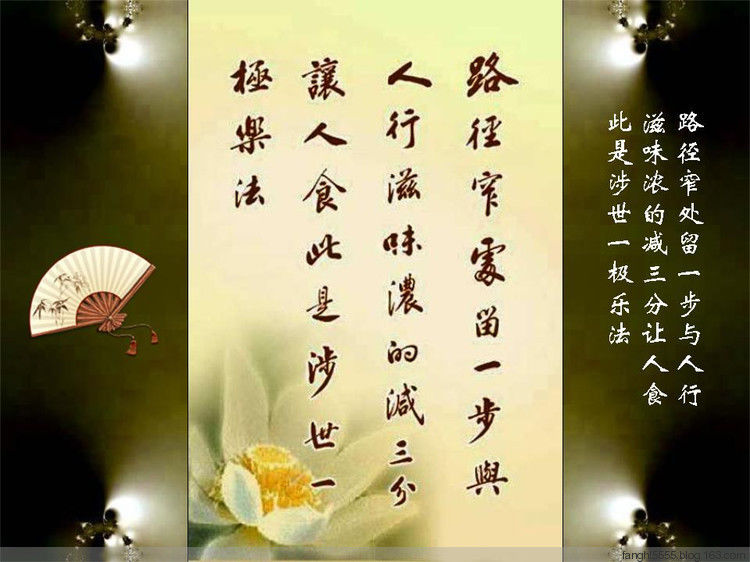 路徑窄處留一步與
人行滋味濃的減三分
讓人食此是涉世一
極樂法
路径窄处留一步与人行
滋味浓的减三分让人食
此是涉世一极乐法
fanghl5555.blog.163.com